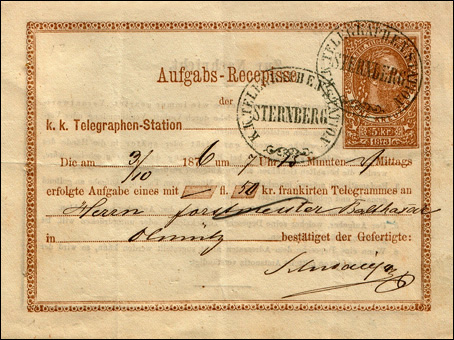 Aufgabs-Recepisse
der
k. k. Telegraphen-Station
K. K. TELEGRAFEN STATION
STERNBERG
K. K. TELEGRAFEN STATION
STERNBERG
5 kr.
1873
Die am 3/10 1876 um 7 Uhr 15 Minuten Mittags
erfolgte Aufgabe eines mit — fl. 50 kr. frankirten Telegrammes an
Herrn Forstmeister Balthasar
in Olmütz bestätiget der Gefertigte: